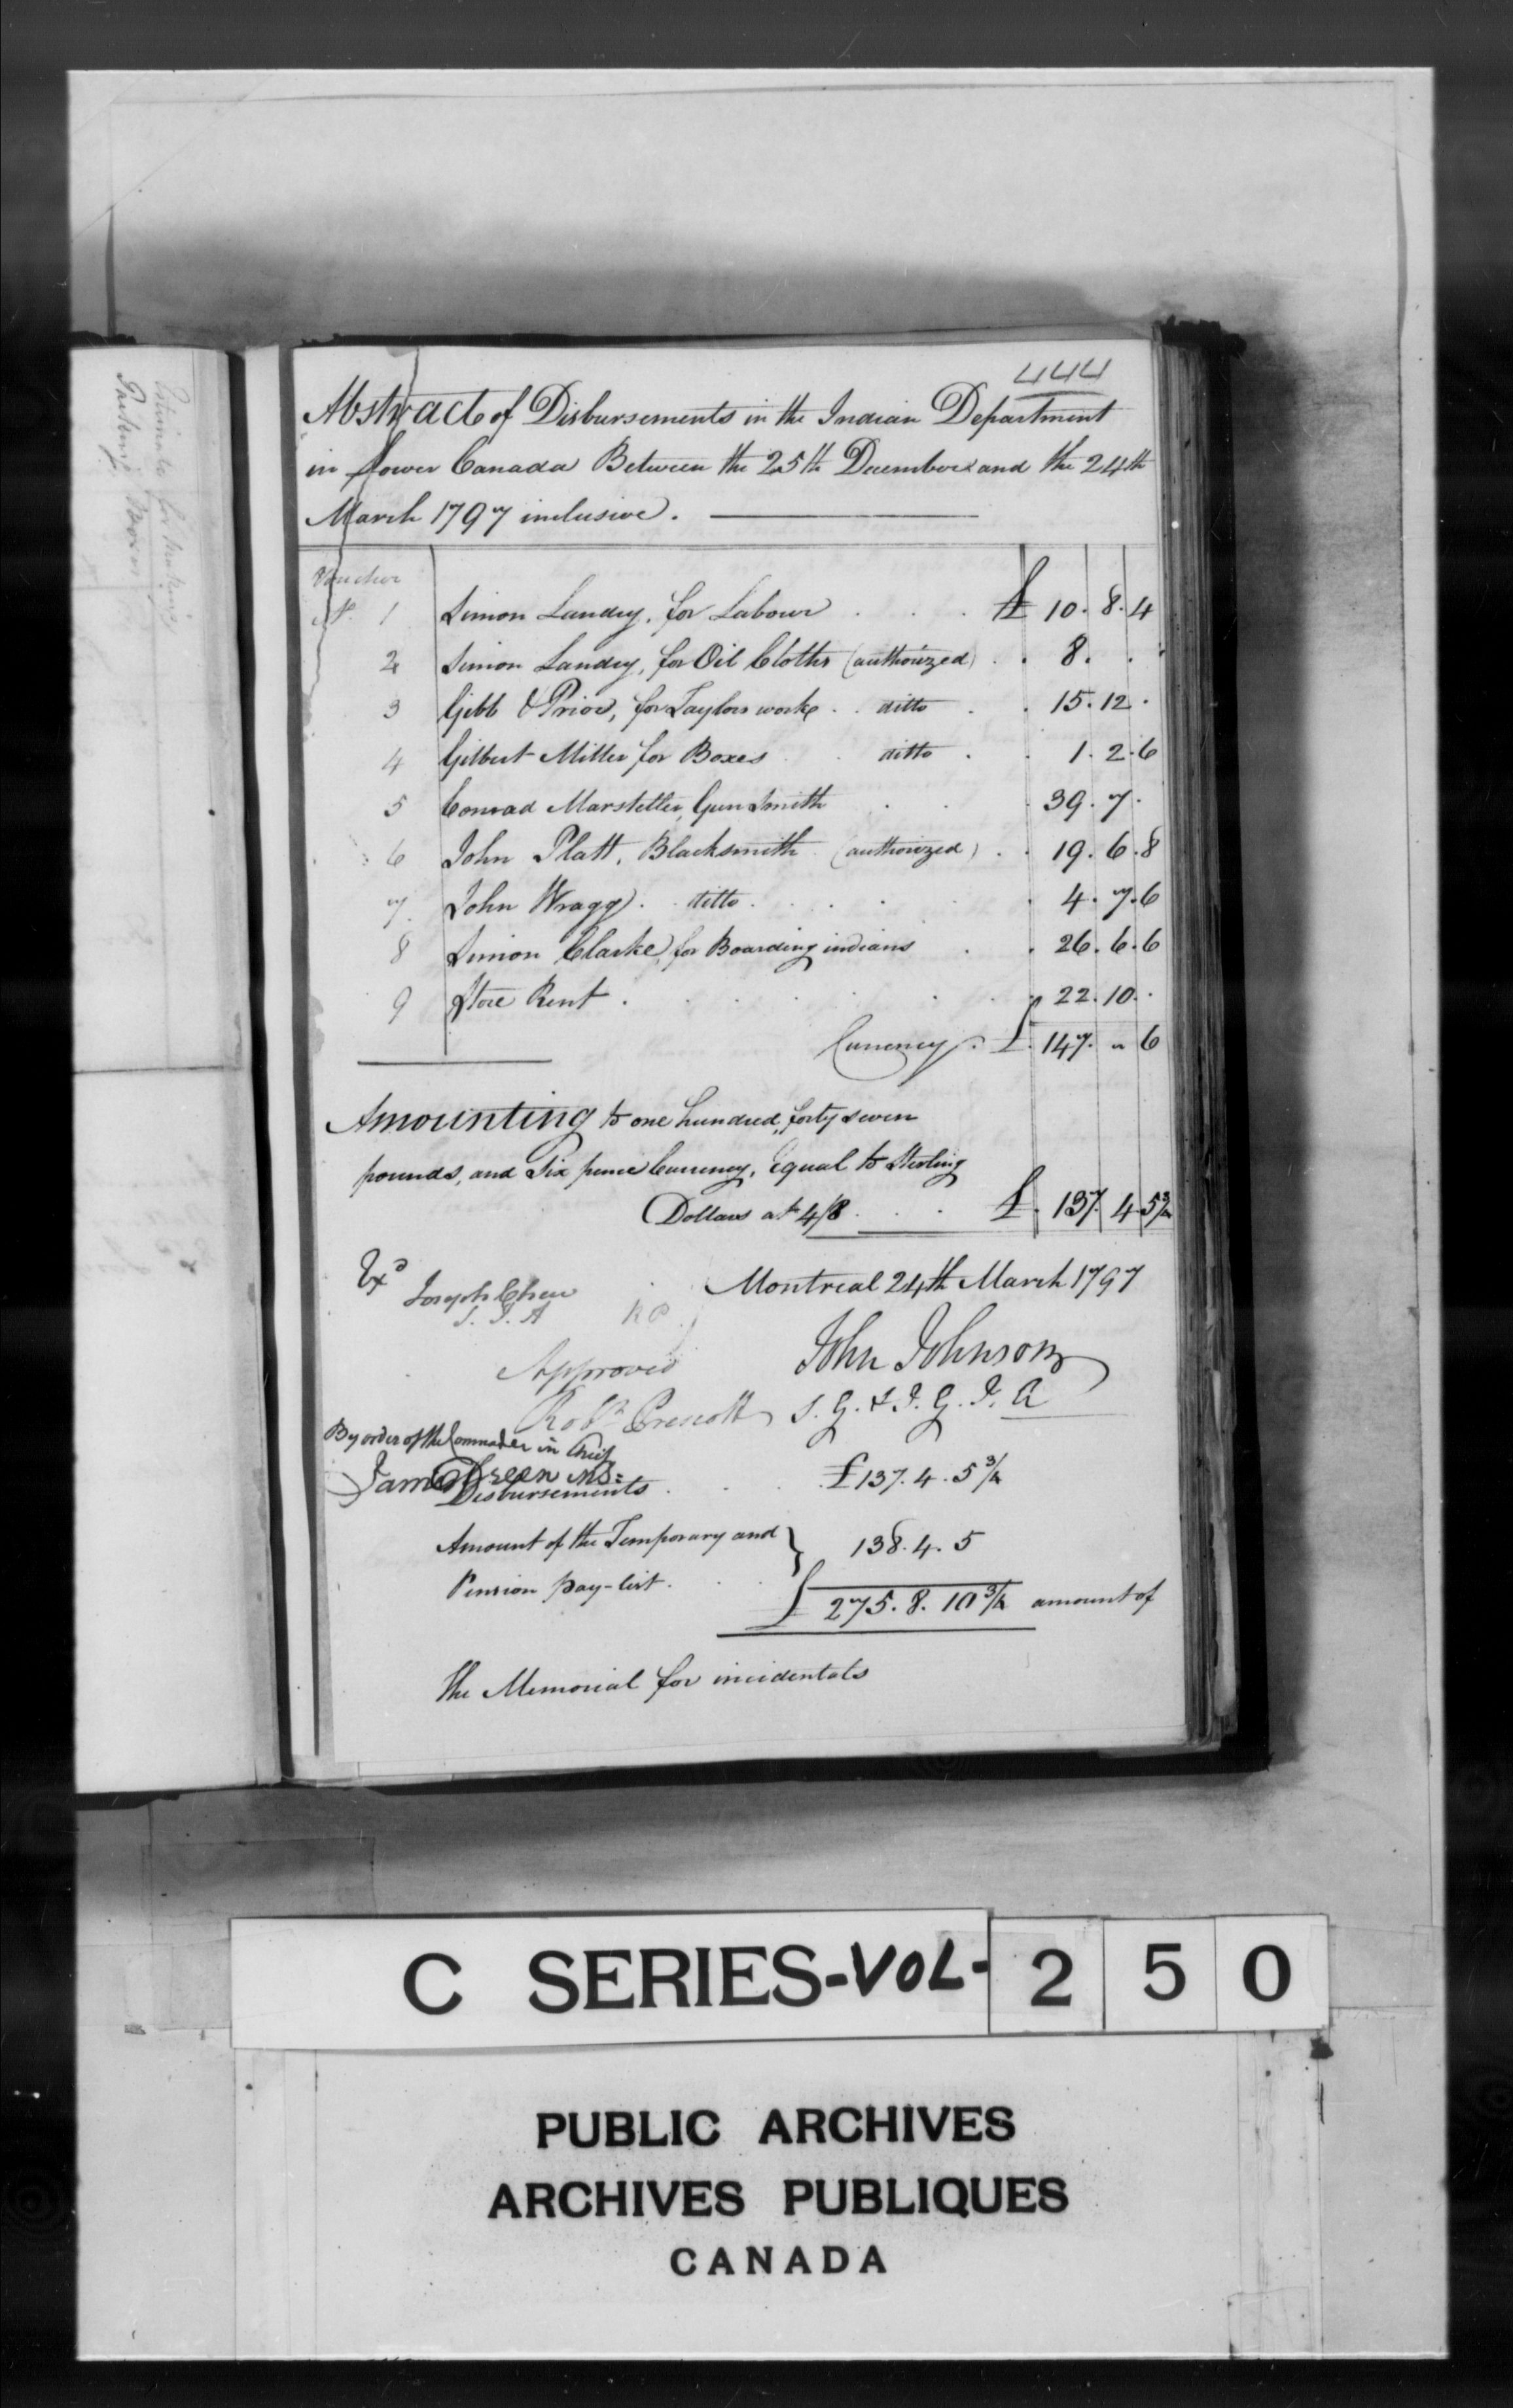 444
Abstract of Disbursements in the Indian Department
in Lower Canada Between the 25th December and the 24th
March 1797 inclusive.
Voucher
No. 1 Simon Landry, for Labour £ 10. 8. 4
2 Simon Landry, for Oil Cloths (authorized) 8. . .
3 Gibb & Prior, for Taylors work ditto 15. 12.
4 Gilbert Miller for Boxes ditto 1. 2. 6
5 Conrad Marsteller, Gun Smith 39. 7.
6 John Platt, Blacksmith (authorized) 19. 6. 8
7. John Wragg ditto 4. 7. 6
8 Simon Clarke, for Boarding indians 26. 6. 6
9 Store Rent 22. 10. .
Currency £ 147. " 6
Amounting to one hundred, forty seven
pounds, and Six pence Currency, Equal to Sterling
Dollars at 4/8 £ 137. 4. 5 3/4
Exd
Joseph Chew
S. I. A
RP
Montreal 24th March 1797
Approved
John Johnson
Robt Prescott
S. G. & I. G. I. A
By order of the Commander in Chief
James Green MS:
Disbursements £137. 4. 5 3/4
Amount of the Temporary and } 138. 4. 5
Pension pay-list.
£ 275. 8. 10 3/4 amount of
the Memorial for incidentals
Estimate for making
Packing Boxes
C SERIES-VOL- 2 5 0
PUBLIC ARCHIVES
ARCHIVES PUBLIQUES
CANADA